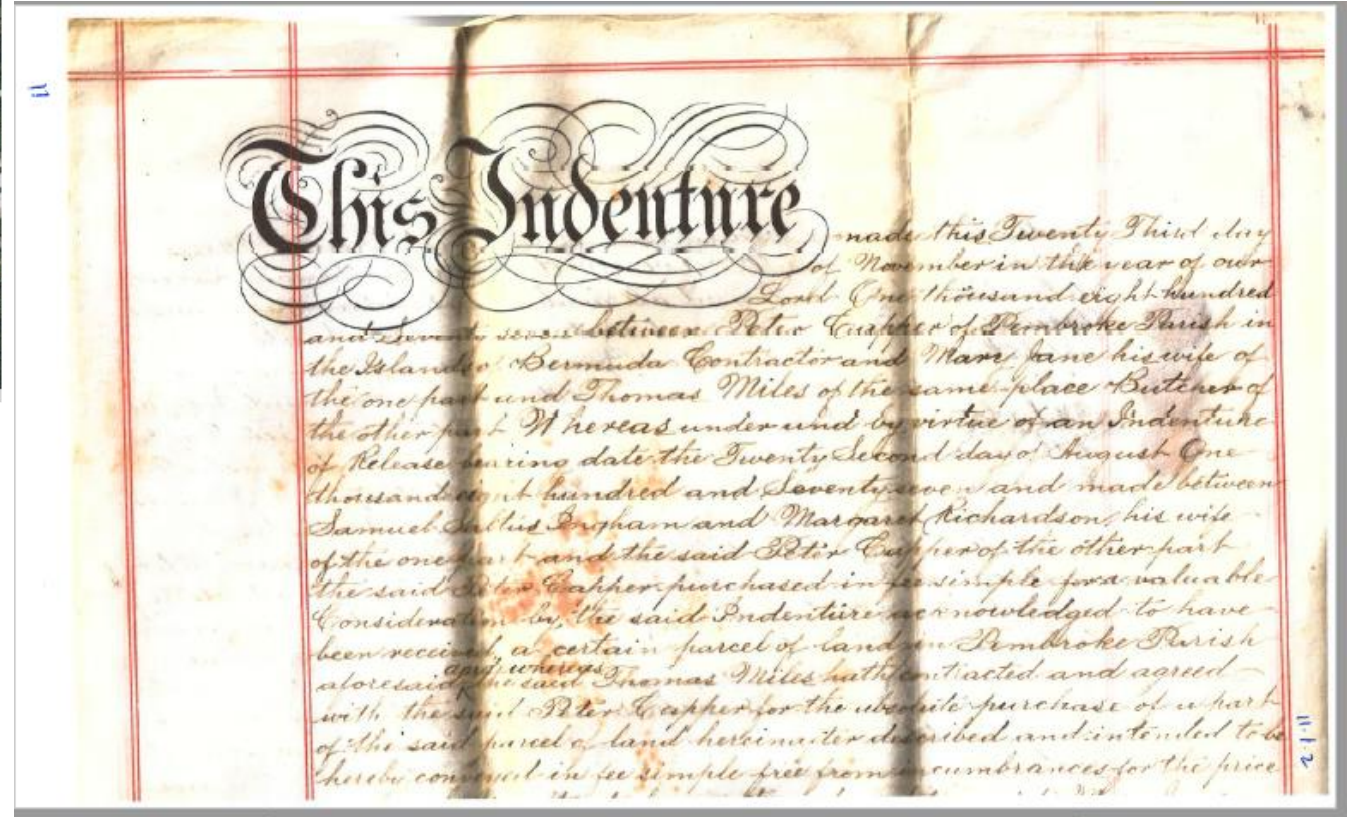 11
This Indenture
made this Twenty Third day
of November in the year of our
Lord One thousand eight hundred
and Seventy seven between Peter Capper of Pembroke Parish in
the Islands of Bermuda Contractor and Mary Jane his wife of
the one part and Thomas Miles of the same place Butcher of
the other part Whereas under and by virtue of an Indenture
of Release bearing date the Twenty Second day of August One
thousand eight hundred and Seventy seven and made between
Samuel Saltus Ingham and Margaret Richardson his wife
of the one part and the said Peter Capper of the other part
the said Peter Capper purchased in fee simple for a valuable
Consideration by the said Indenture acknowledged to have
been received a certain parcel of land in Pembroke Parish
and whereas
aforesaid the said Thomas Miles hath contracted and agreed
with the said Peter Capper for the absolute purchase of a part
of the said parcel of land hereinafter described and intended to be
hereby conveyed in fee simple free from incumbrances for the price